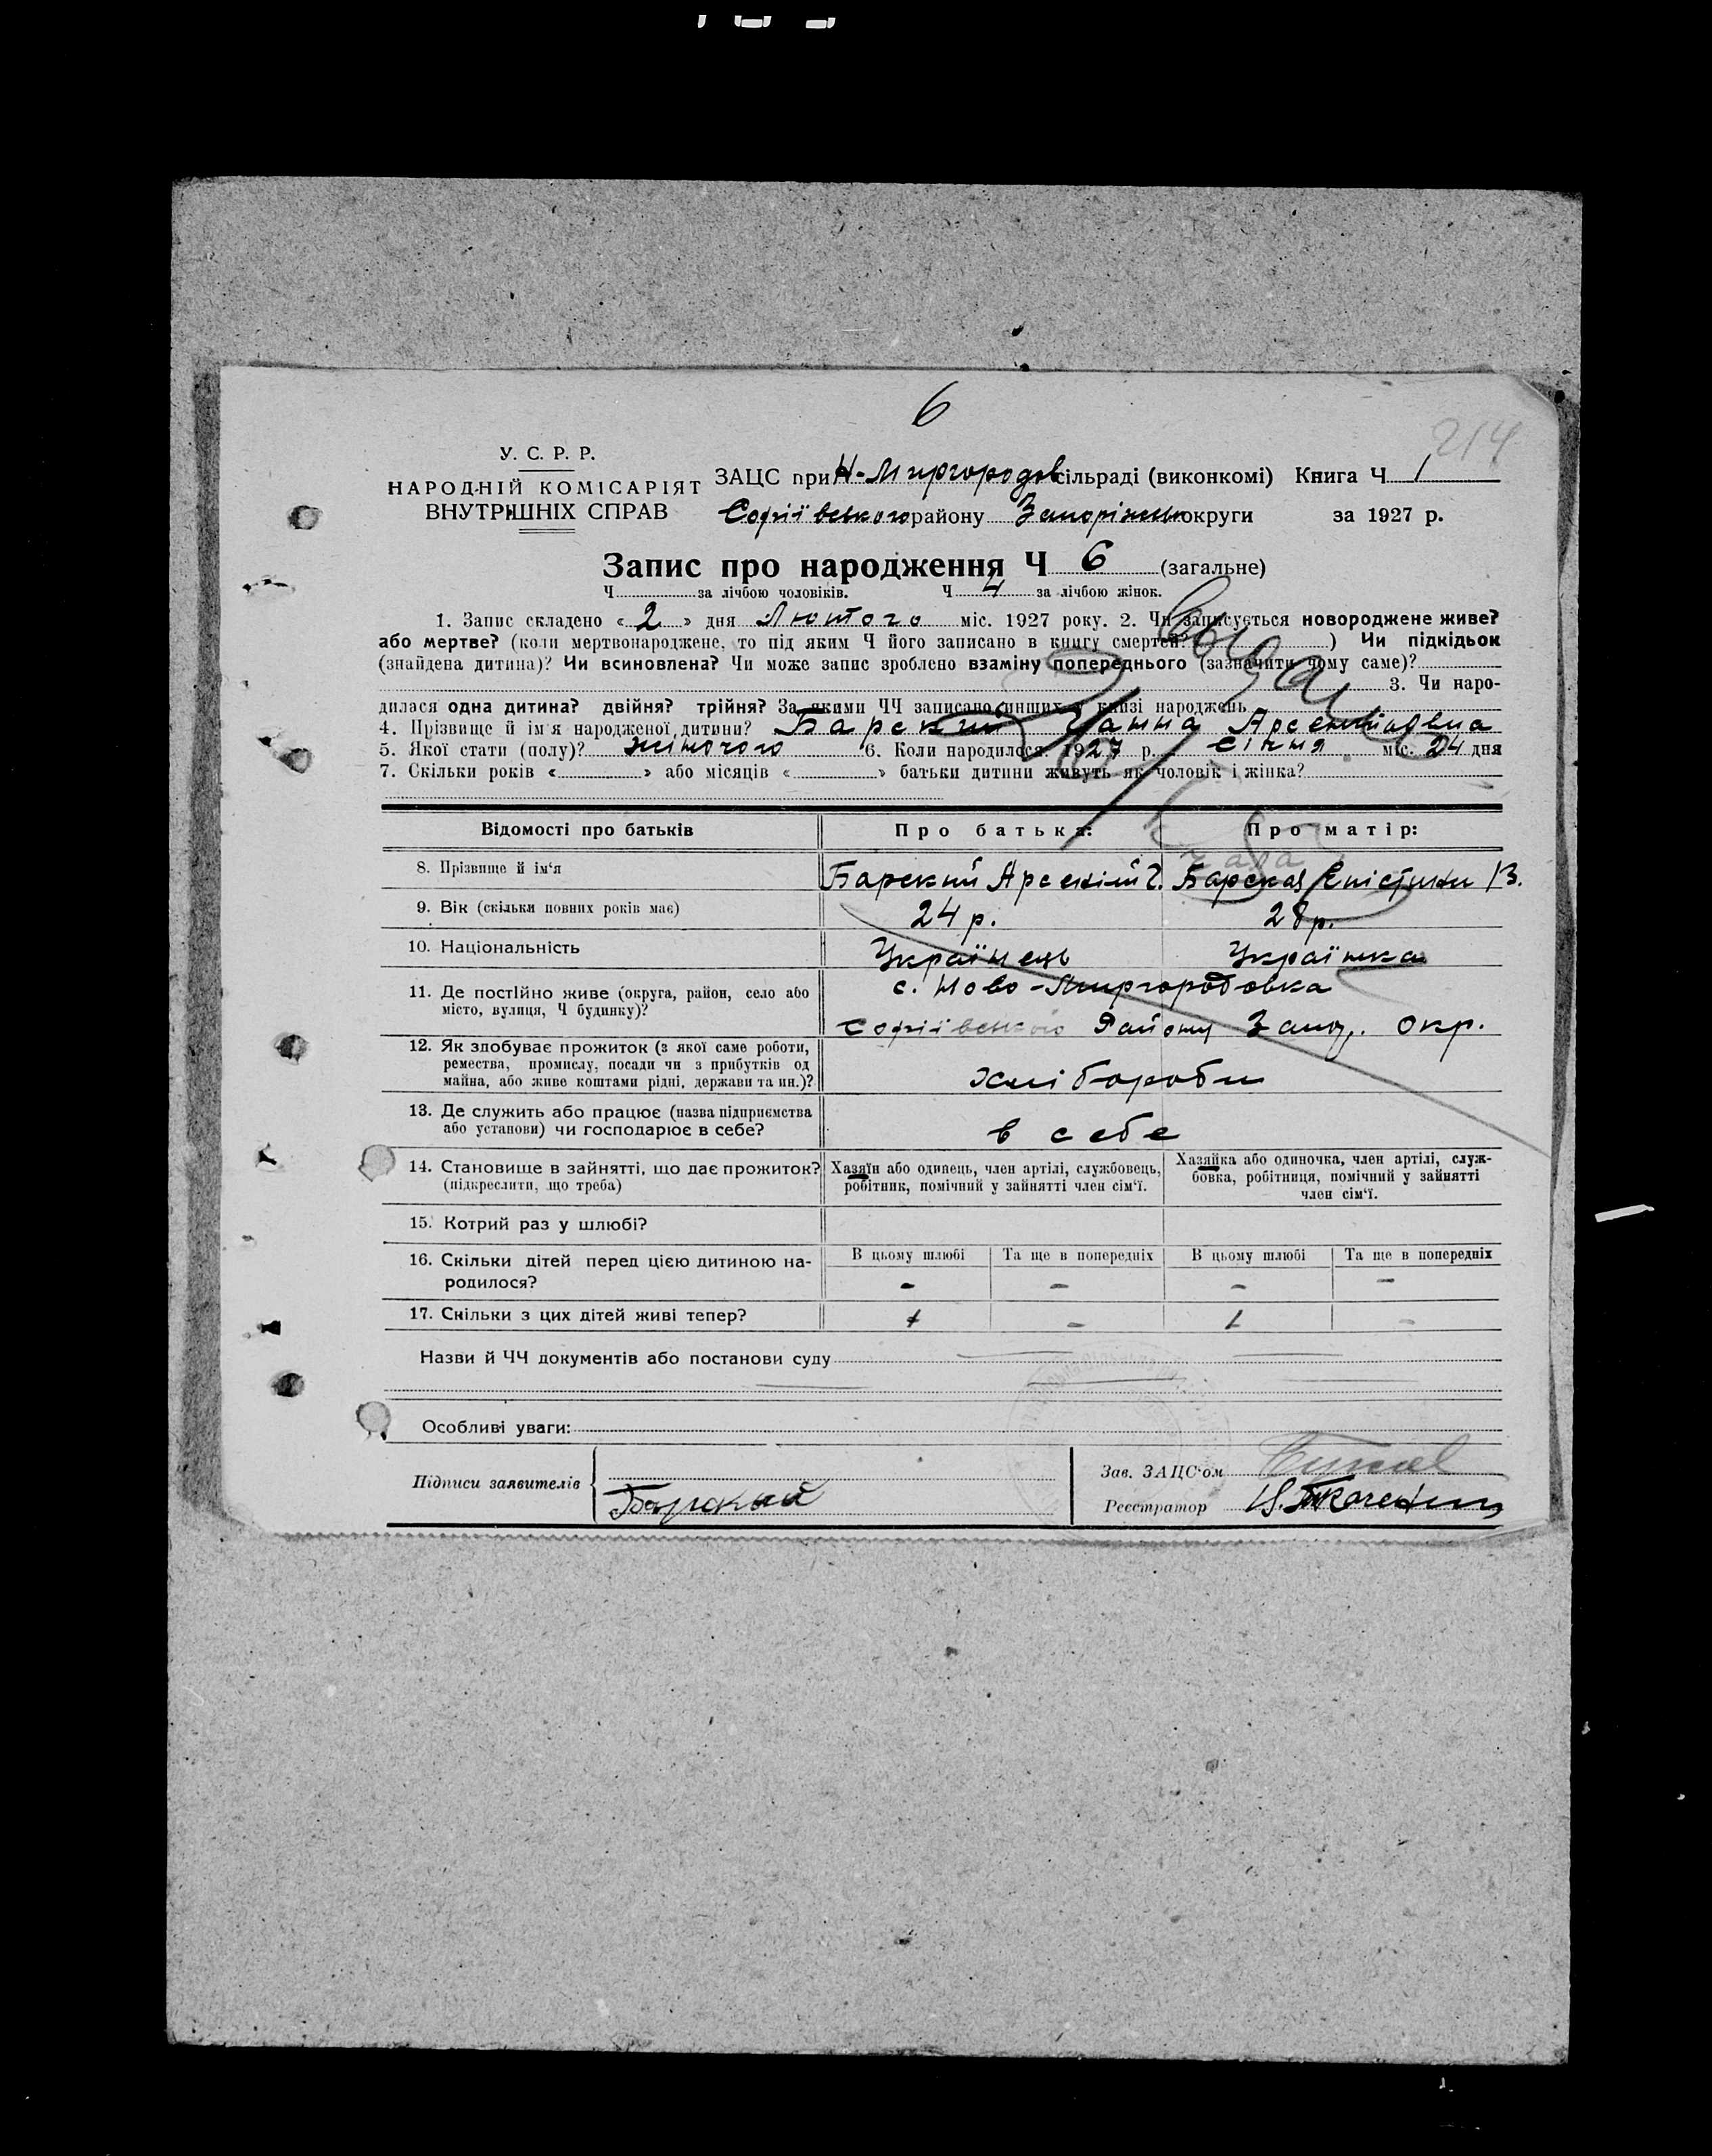 6
214
У. С. Р. Р.
НАРОДНІЙ КОМІСАРІЯТ
ВНУТРІШНІХ СПРАВ
ЗАЦС при Н-Миргородов сільраді (виконкомі) Книга Ч 1
Софіївського району Запоріжськ округи за 1927 р.
Запис про народження Ч 6 (загальне)
Ч за лічбою чоловіків. Ч 4 за лічбою жінок.
1. Запис складено « 2 » дня Лютого міс. 1927 року. 2. Чи записується новороджене живе?
або мертве? (коли мертвонароджене, то під яким Ч його записано в книгу смертей? ) Чи підкідьок
(знайдена дитина)? Чи всиновлена? Чи може запис зроблено взаміну попереднього (зазначити чому саме)?
3. Чи наро-
дилася одна дитина? двійня? трійня? За якими ЧЧ записано инших у книзі народжень
4. Прізвище й ім'я народженої дитини? Барский Ганна Арсентіовна
5. Якої стати (полу)? жіночого 6. Коли народилося 1927 р. Січня міс. 24 дня
7. Скільки років « » або місяців « » батьки дитини живуть як чоловік і жінка?
Відомості про батьків Про батька: Про матір:
8. Прізвище й ім'я Барский Арсеній Г. Барская В.
9. Вік (скільки повних років має) 24 р. 28 р.
10. Національність Українець Українка
11. Де постійно живе (округа, район, село або
місто, вулиця, Ч будинку)?
с. Ново-Миргородовка
Софіївського Району Запор. Окр.
12. Як здобуває прожиток (з якої саме роботи,
ремества, промислу, посади чи з прибутків од
майна, або живе коштами рідні, держави та ин.)?
хлібороби
13. Де служить або працює (назва підприємства
або установи) чи господарює в себе?
в себе
14. Становище в зайнятті, що дає прожиток?
(підкреслити, що треба)
Хазяїн або одинець, член артілі, службовець,
робітник, помічний у зайнятті член сім'ї.
Хазяйка або одиночка, член артілі, служ-
бовка, робітниця, помічний у зайнятті
член сім'ї.
15. Котрий раз у шлюбі?
16. Скільки дітей перед цією дитиною на-
родилося?
В цьому шлюбі Та ще в попередніх В цьому шлюбі Та ще в попередніх
- - - -
17. Скільки з цих дітей живі тепер? 1 - 1 -
Назви й ЧЧ документів або постанови суду
Особливі уваги:
Підписи заявителів Барский
Зав. ЗАЦС'ом
Реєстратор